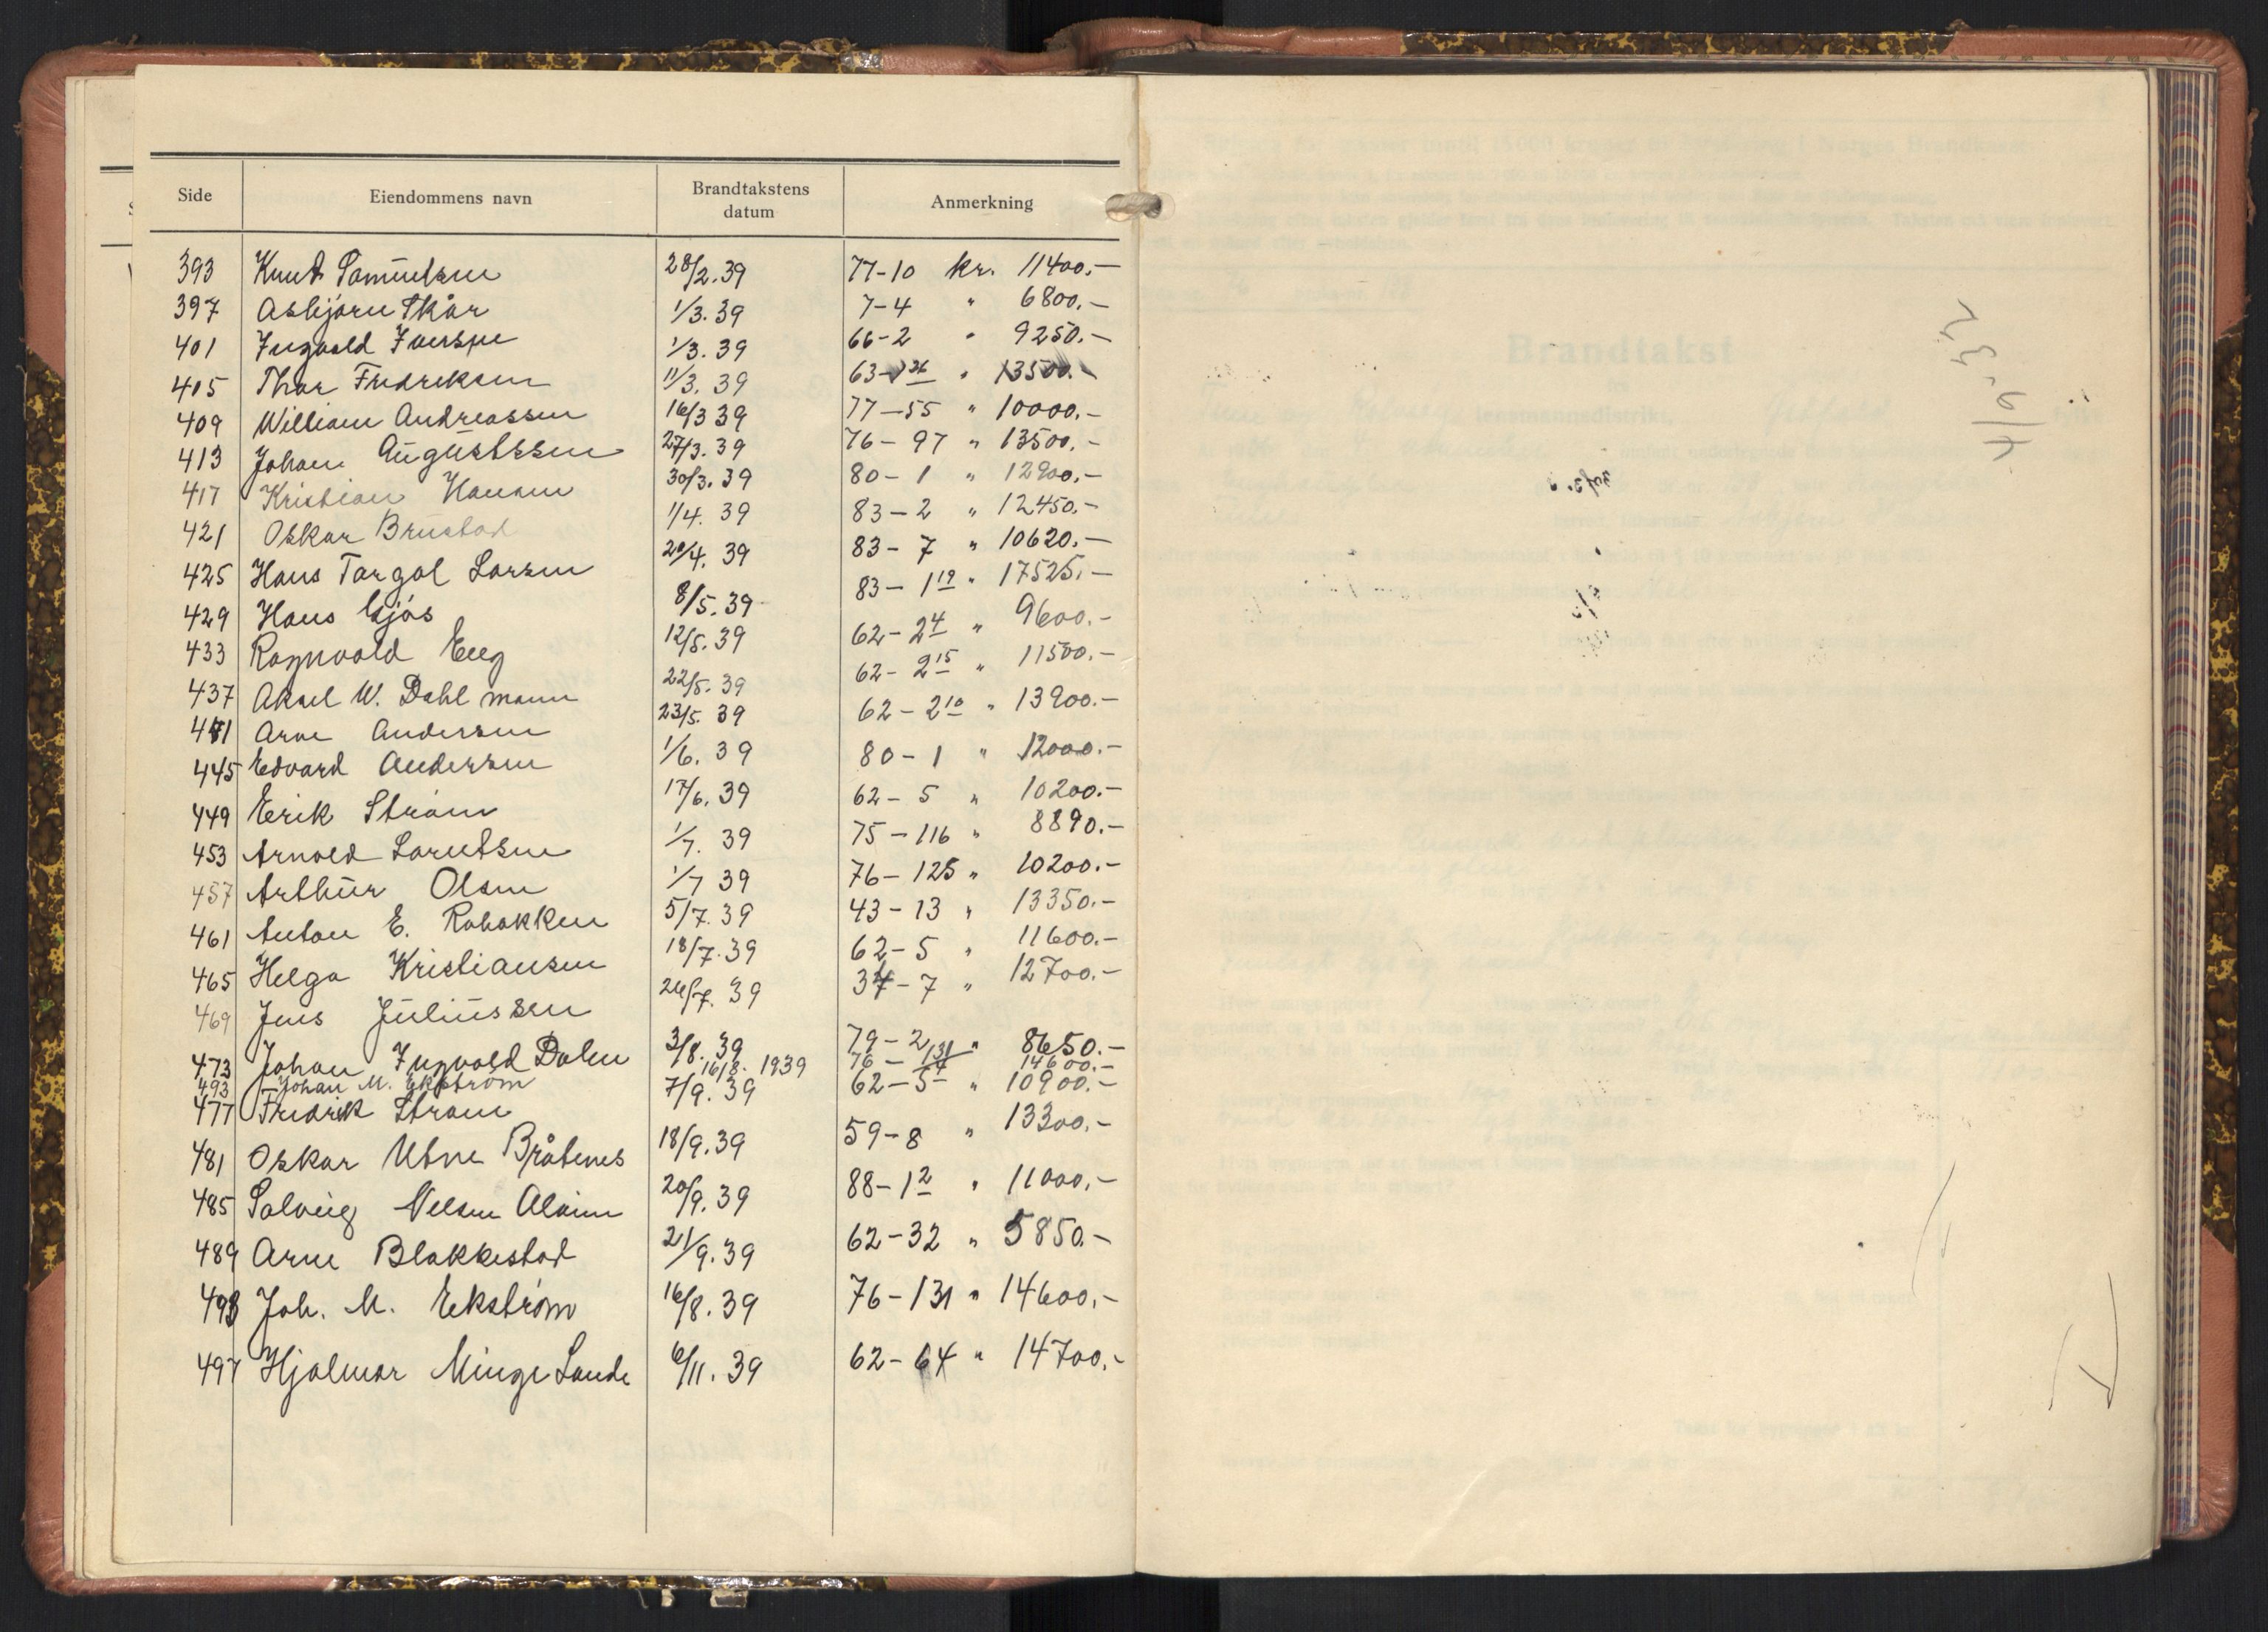 Side Eiendommens navn Brandtakstens datum Anmerkning
393 Knut Samuelsen 28/2.39 77-10 kr. 11400.-
397 Asbjørn Skår 1/3.39 7-4 " 6800.-
401 Ingvald Iversen 1/3.39 66-2 " 9250.-
405 Thor Fredriksen 11/3.39 63- " 13500.-
409 William Andreassen 16/3 39 77-55 " 10000.-
413 Johan Augustssen 27/3.39 76-97 " 13500.-
417 Kristian Hansen 30/3.39 80-1 " 12900.-
421 Oskar Brustad 1/4.39 83-2 " 12450.-
425 Hans Torgal Larsen 20/4.39 83-7 " 10620.-
429 Hans Gjøs 8/5.39 83-1 19 " 17525.-
433 Ragnvald Eeg 12/5.39 62-2 4 " 9600.-
437 Aksel W. Dahl mann 22/5.39 62-2 15 " 11500.-
441 Arne Andersen 23/5.39 62-2 10 " 13900.-
445 Edvard Andersen 1/6.39 80-1 " 12000.-
449 Erik Strøm 17/6.39 62-5 " 10200.-
453 Arnold Lorentsen 1/7.39 75-116 " 8890.-
457 Arthur Olsen 1/7 39 76-125 " 10200.-
461 Anton E. Rabakken 5/7.39 43-13 " 13350.-
465 Helga Kristiansen 18/7.39 62-5 " 11600.-
469 Jens Juliussen 26/7.39 37-7 " 12700.-
473 Johan Ingvald Dalen 3/8.39 79-2 " 8650.-
493 Johan M. Ekstrøm 16/8.1939 76-131 14600.-
477 Fredrik Strøm 7/9.39 62-5 " 10900.-
481 Oskar Utne Bråtenes 18/9.39 59-8 " 13300.-
485 Solveig Nilsen Alvim 20/9.39 88-1 2 " 11000.-
489 Arne Blakkestad 21/9.39 62-32 " 5850.-
493 Joh. M. Ekstrøm 16/8.39 76-131 " 14600.-
497 Hjalmar Minge Sande 6/11.39 62-64 " 14700.-
Brandtakst